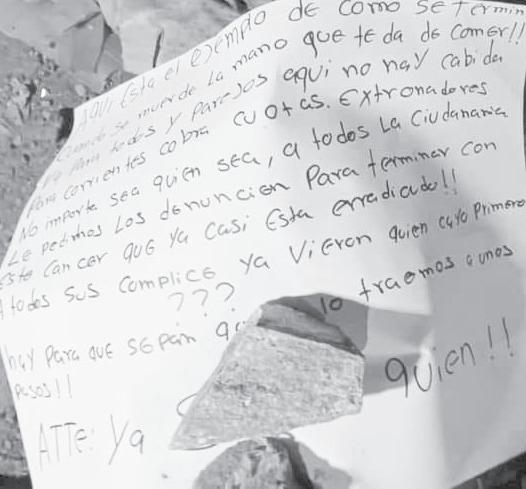 AQUI Esta el ejemplo DE COMO SE termin
Cuando se muerde La mano que te da de comer!!
Para todos y Parejos aqui no hay cabida
Para corrientes cobra cuotas. Extronadores
No importa sea quien sea, a todos La Ciudanania
Le pedimos Los denuncien Para terminar con
Este Cancer QUE Ya Casi Esta erradicado!!
A todos sus complice ya Vieron quien cayo Primero
???
hay Para que sepan lo traemos a unos
Pesos!!
ATTe: Ya quien!!